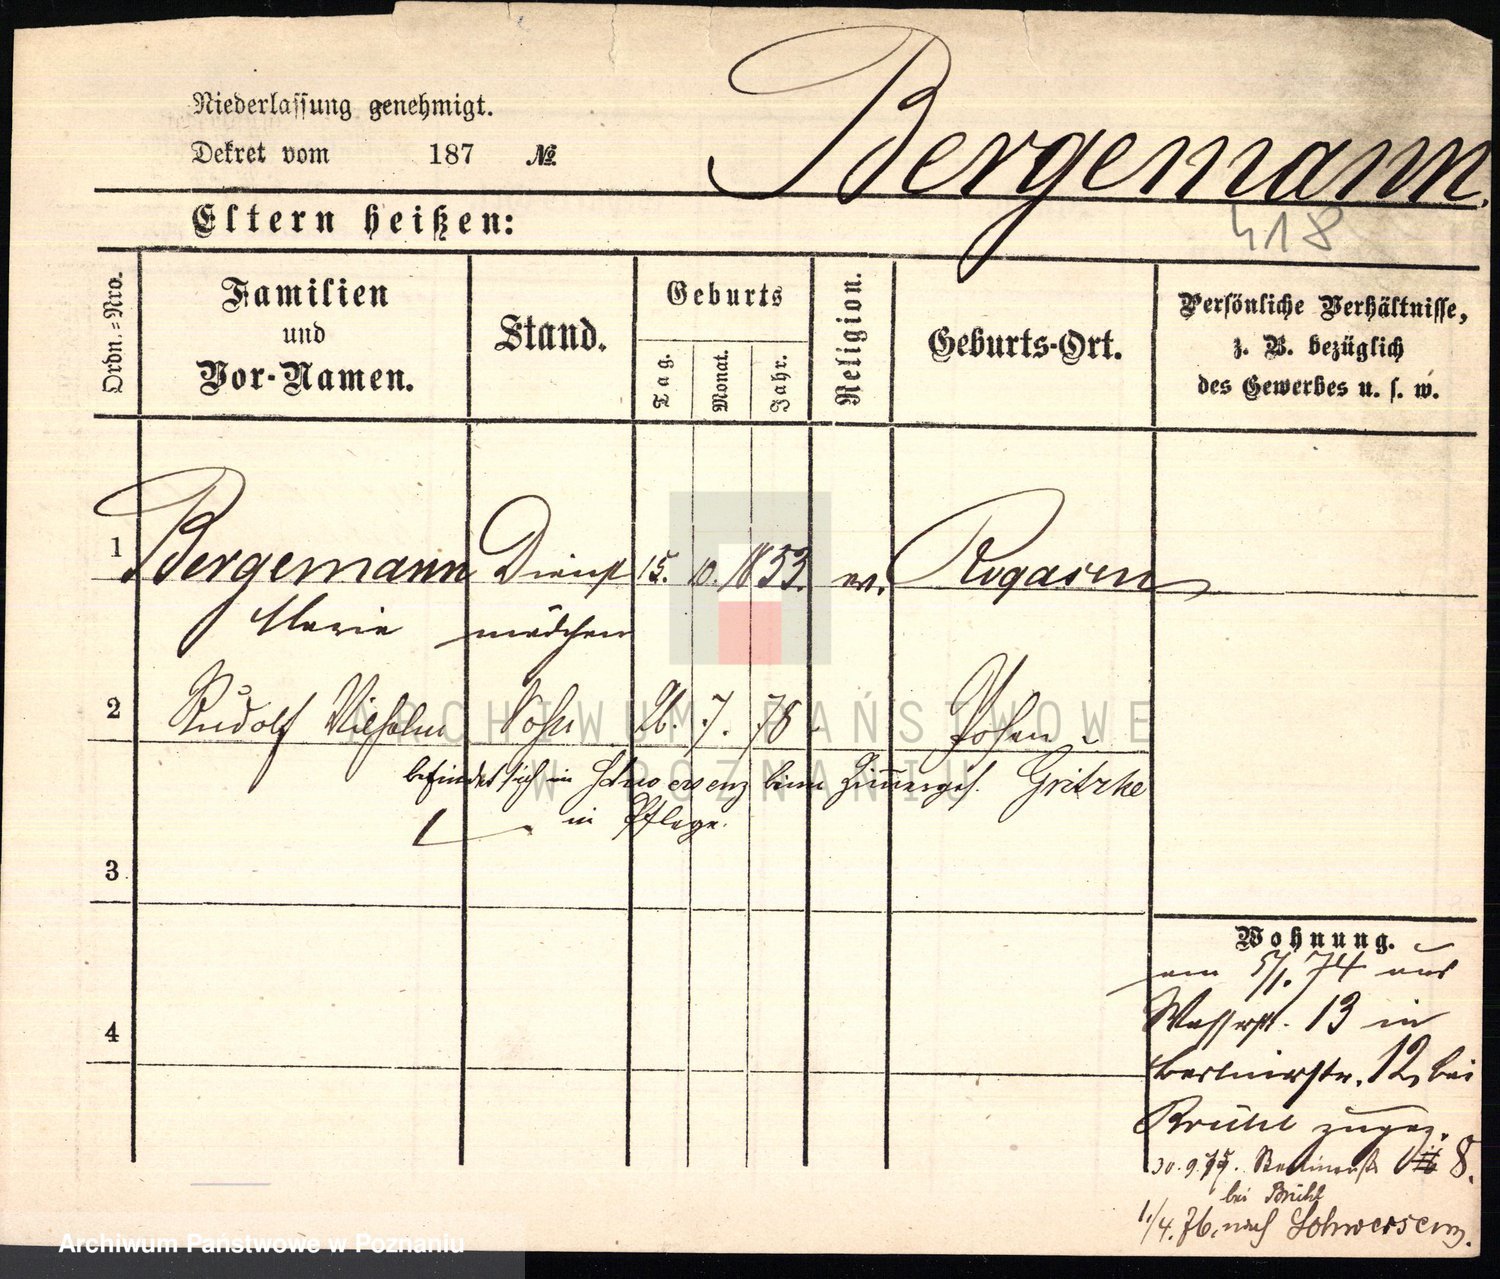 Bergemann.
Niederlassung genehmigt.
Dekret vom 187 №
418
Eltern heißen:
Ordn.-Nro.
Familien
und
Vor-Namen.
Stand.
Geburts
Tag.
Monat.
Jahr.
Religion.
Geburts-Ort.
Persönliche Verhältnisse,
z. B. bezüglich
des Gewerbes u. s. w.
1 Bergemann Dienst 15. 10. 1853. ev. Rogasen
Marie mädchen
2 Rudolf Wilhelm Sohn 26. 7. 78 Posen
befindet sich in Schwersenz beim Zimmerges. Gritzke
in Pflege.
3
4
Wohnung.
am 5/1. 74 aus
Wasserstr. 13 in
Berlinerstr. 12, bei
Brühl zugez.
30. 9. 75. Berlinerstr 8.
bei Brühl
1./4. 76. nach Schwersenz.
ARCHIWUM PAŃSTWOWE
W POZNANIU
Archiwum Państwowe w Poznaniu